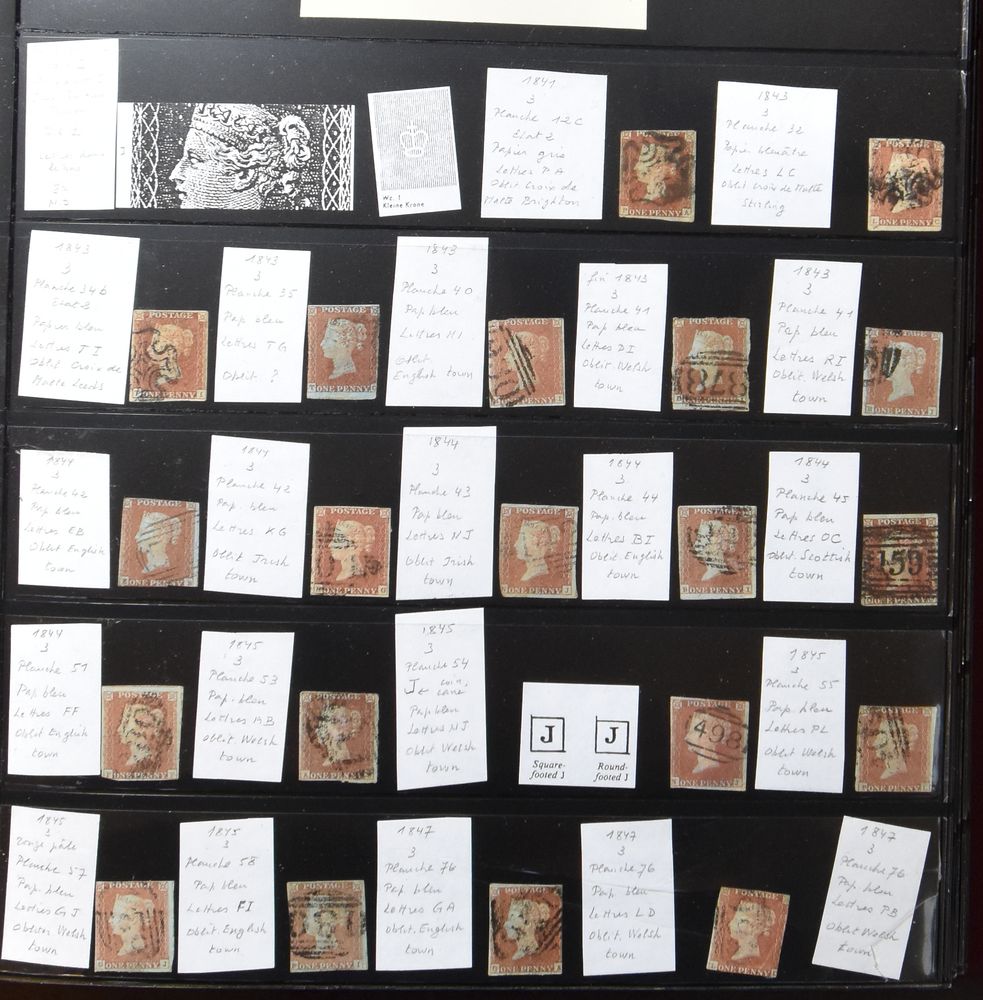 Wz. 1
Kleine Krone
1841
3
Planche 12C
Etat 2
Papier gris
Lettres PA
Oblit Croix de
Malte Brighton
ONE PENNY
1843
3
Planche 32
Papier bleuâtre
Lettres LC
Oblit Croix de Malte
Stirling
ONE PENNY
1843
3
Planche 34b
Etat 3
Papier bleu
Lettres TI
Oblit Croix de
Malte Leeds
POSTAGE
ONE PENNY
1843
3
Planche 35
Pap bleu
Lettres TG
Oblit ?
POSTAGE
ONE PENNY
1843
3
Planche 40
Pap bleu
Lettres HI
Oblit.
English town
POSTAGE
ONE PENNY
fin 1843
3
Planche 41
Pap bleu
Lettres DI
Oblit. Welsh
town
POSTAGE
378
1843
3
Planche 41
Pap bleu
Lettres RI
Oblit. Welsh
town
POSTAGE
ONE PENNY
1844
3
Planche 42
Pap bleu
Lettres EB
Oblit English
town
POSTAGE
ONE PENNY
1844
3
Planche 42
Pap. bleu
Lettres KG
Oblit Irish
town
POSTAGE
ONE PENNY
1844
3
Planche 43
Pap bleu
Lettres NJ
Oblit Irish
town
POSTAGE
ONE PENNY
1844
3
Planche 44
Pap. bleu
Lettres BI
Oblit English
town
POSTAGE
ONE PENNY
1844
3
Planche 45
Pap bleu
Lettres OC
Oblit Scottish
town
POSTAGE
159
ONE PENNY
1844
3
Planche 51
Pap bleu
Lettres FF
Oblit English
town
POSTAGE
ONE PENNY
1845
3
Planche 53
Pap. bleu
Lettres
Oblit. Welsh
town
POSTAGE
ONE PENNY
1845
3
Planche 54
J et coin,
carré
Pap bleu
Lettres NJ
Oblit Welsh
town
J
Square-
footed J
J
Round-
footed J
POSTAGE
498
ONE PENNY
1845
3
Planche 55
Pap. bleu
Lettres PL
Oblit Welsh
town
POSTAGE
ONE PENNY
1845
3
rouge pâle
Planche 57
Pap. bleu
Lettres GJ
Welsh
town
POSTAGE
ONE PENNY
1845
3
Planche 58
Pap bleu
Lettres FI
Oblit. English
town
POSTAGE
ONE PENNY
1847
3
Planche 76
Pap bleu
Lettres GA
Oblit. English
town
POSTAGE
ONE PENNY
1847
3
Planche 76
Pap bleu
Lettres LD
Oblit. Welsh
town
POSTAGE
ONE PENNY
1847
3
Planche 76
Pap bleu
Lettres PB
Oblit Welsh
town